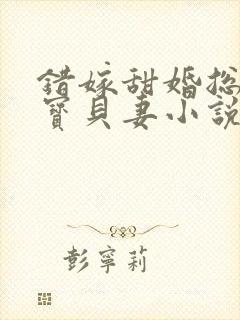 錯嫁甜婚總
寶貝妻小說
彭寧莉